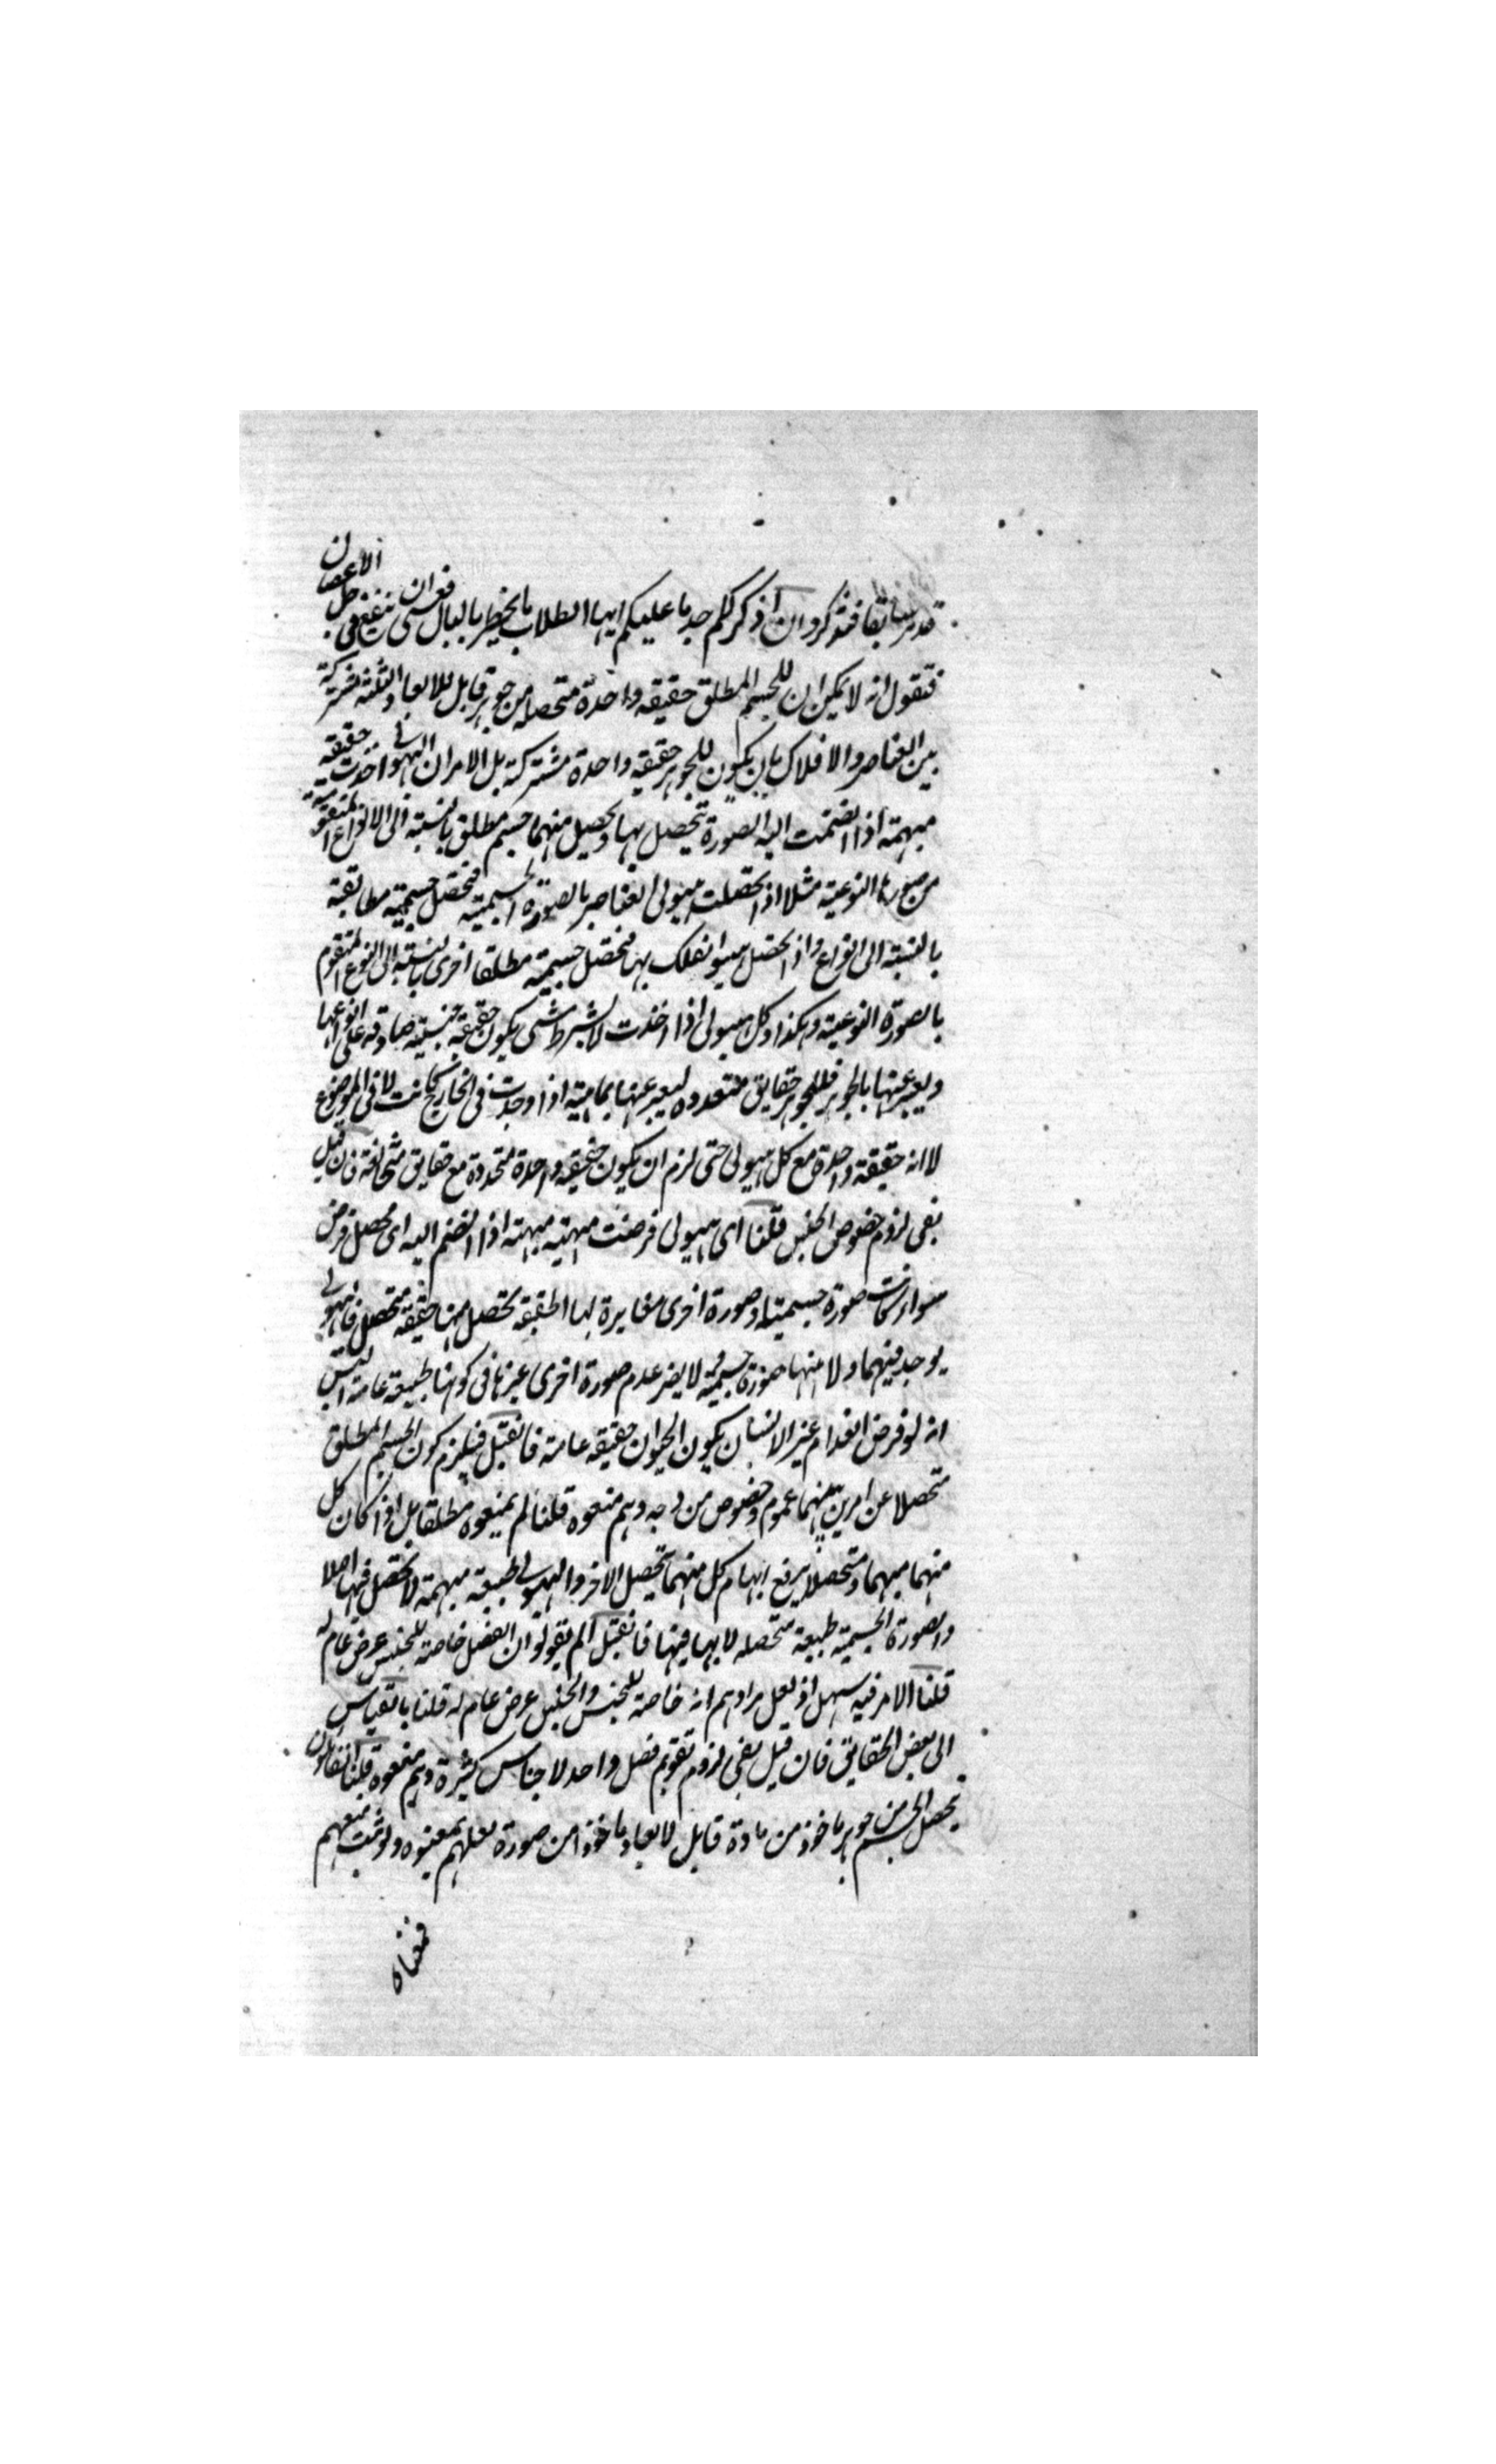 قد مر سابقا فتذكروا ان اذكر لكم جديا عليكم ايها الطلاب ما يخطر بالبال فعسى ان ينفع في حل الاعضان
فتقول انه لا يمكن ان للجسم المطلق حقيقه واحدة متحصله من جوهر قابل للابعاد الثلثة مشتركة
بين العناصر والافلاك بان يكون للجوهر حقيقه واحدة مشتركة بل الامر ان الهيولى اخذت حقيقه
مبهمة اذا انضمت اليه الصورة تتحصل بها ويحصل منهما جسم مطلق بالنسبة الى الانواع المتقومة
من صورها النوعية مثلا اذا تحصلت هيولى العناصر بالصورة الجسمية فتحصل جسمية مطابقة
بالنسبة الى انواع واذا تحصل هيولى الفلك بها فتحصل جسمية مطلقا اخرى بالنسبة الى النوع المتقوم
بالصورة النوعية وهكذا وكل هيولى اذا اخذت لا بشرط شى يكون حقيقة جنسية صادقه على انواعها
ويعبر عنها بالجوهر فللجوهر حقايق متعدده ليعبر عنها بماهية اذا وجدت فى الخارج كانت لا فى الموضوع
لا انه حقيقة واحدة مع كل هيولى حتى لزم ان يكون حقيقه واحدة متحدة مع حقايق متخالفة فان قيل
بقى لزوم خصوص الجنس قلنا اى هيولى فرضت مهية مبهمة اذا انضم اليه اى محصل فرض
سواء كانت صورة جسمية او صورة اخرى مغايرة لها الحقيقه تحصل منها حقيقه متحصل فالهيولى
يوجد فيهما ولا منها صورة جسمية لا يضر عدم صورة اخرى غيرها فى كونها طبيعة عامة اليس
انه لو فرض انعدام غير الانسان يكون الحيوان حقيقه عامة فان قيل فيلزم كون الجسم المطلق
متحصلا عن امرين بينهما عموم وخصوص من وجه وهم منعوه قلنا لم يمنعوه مطلقا بل اذا كان كل
منهما مبهما ومتحصلا يرفع ابهام كل منهما بتحصيل الاخر والهيولى طبيعة مبهمة لا تحصل فيها اصلا
والصورة الجسمية طبيعة متحصله لا ابهام فيها فان قيل الم يقولوا ان الفصل خاصة للجنس عرض عام له
قلنا الامر فيه سهل اذ لعل مرادهم انه خاصة للجنس والجنس عرض عام له قلنا بالقياس
الى بعض الحقايق فان قيل بقى لزوم تقويم فصل واحد لاجناس كثيرة وهم منعوه قلنا القائلون
بتحصل الجسم من جوهر ماخوذ من مادة قابل لابعاد ماخوذا من صورة لعلهم يمنعوه ولو ثبت منعهم
فمعناه